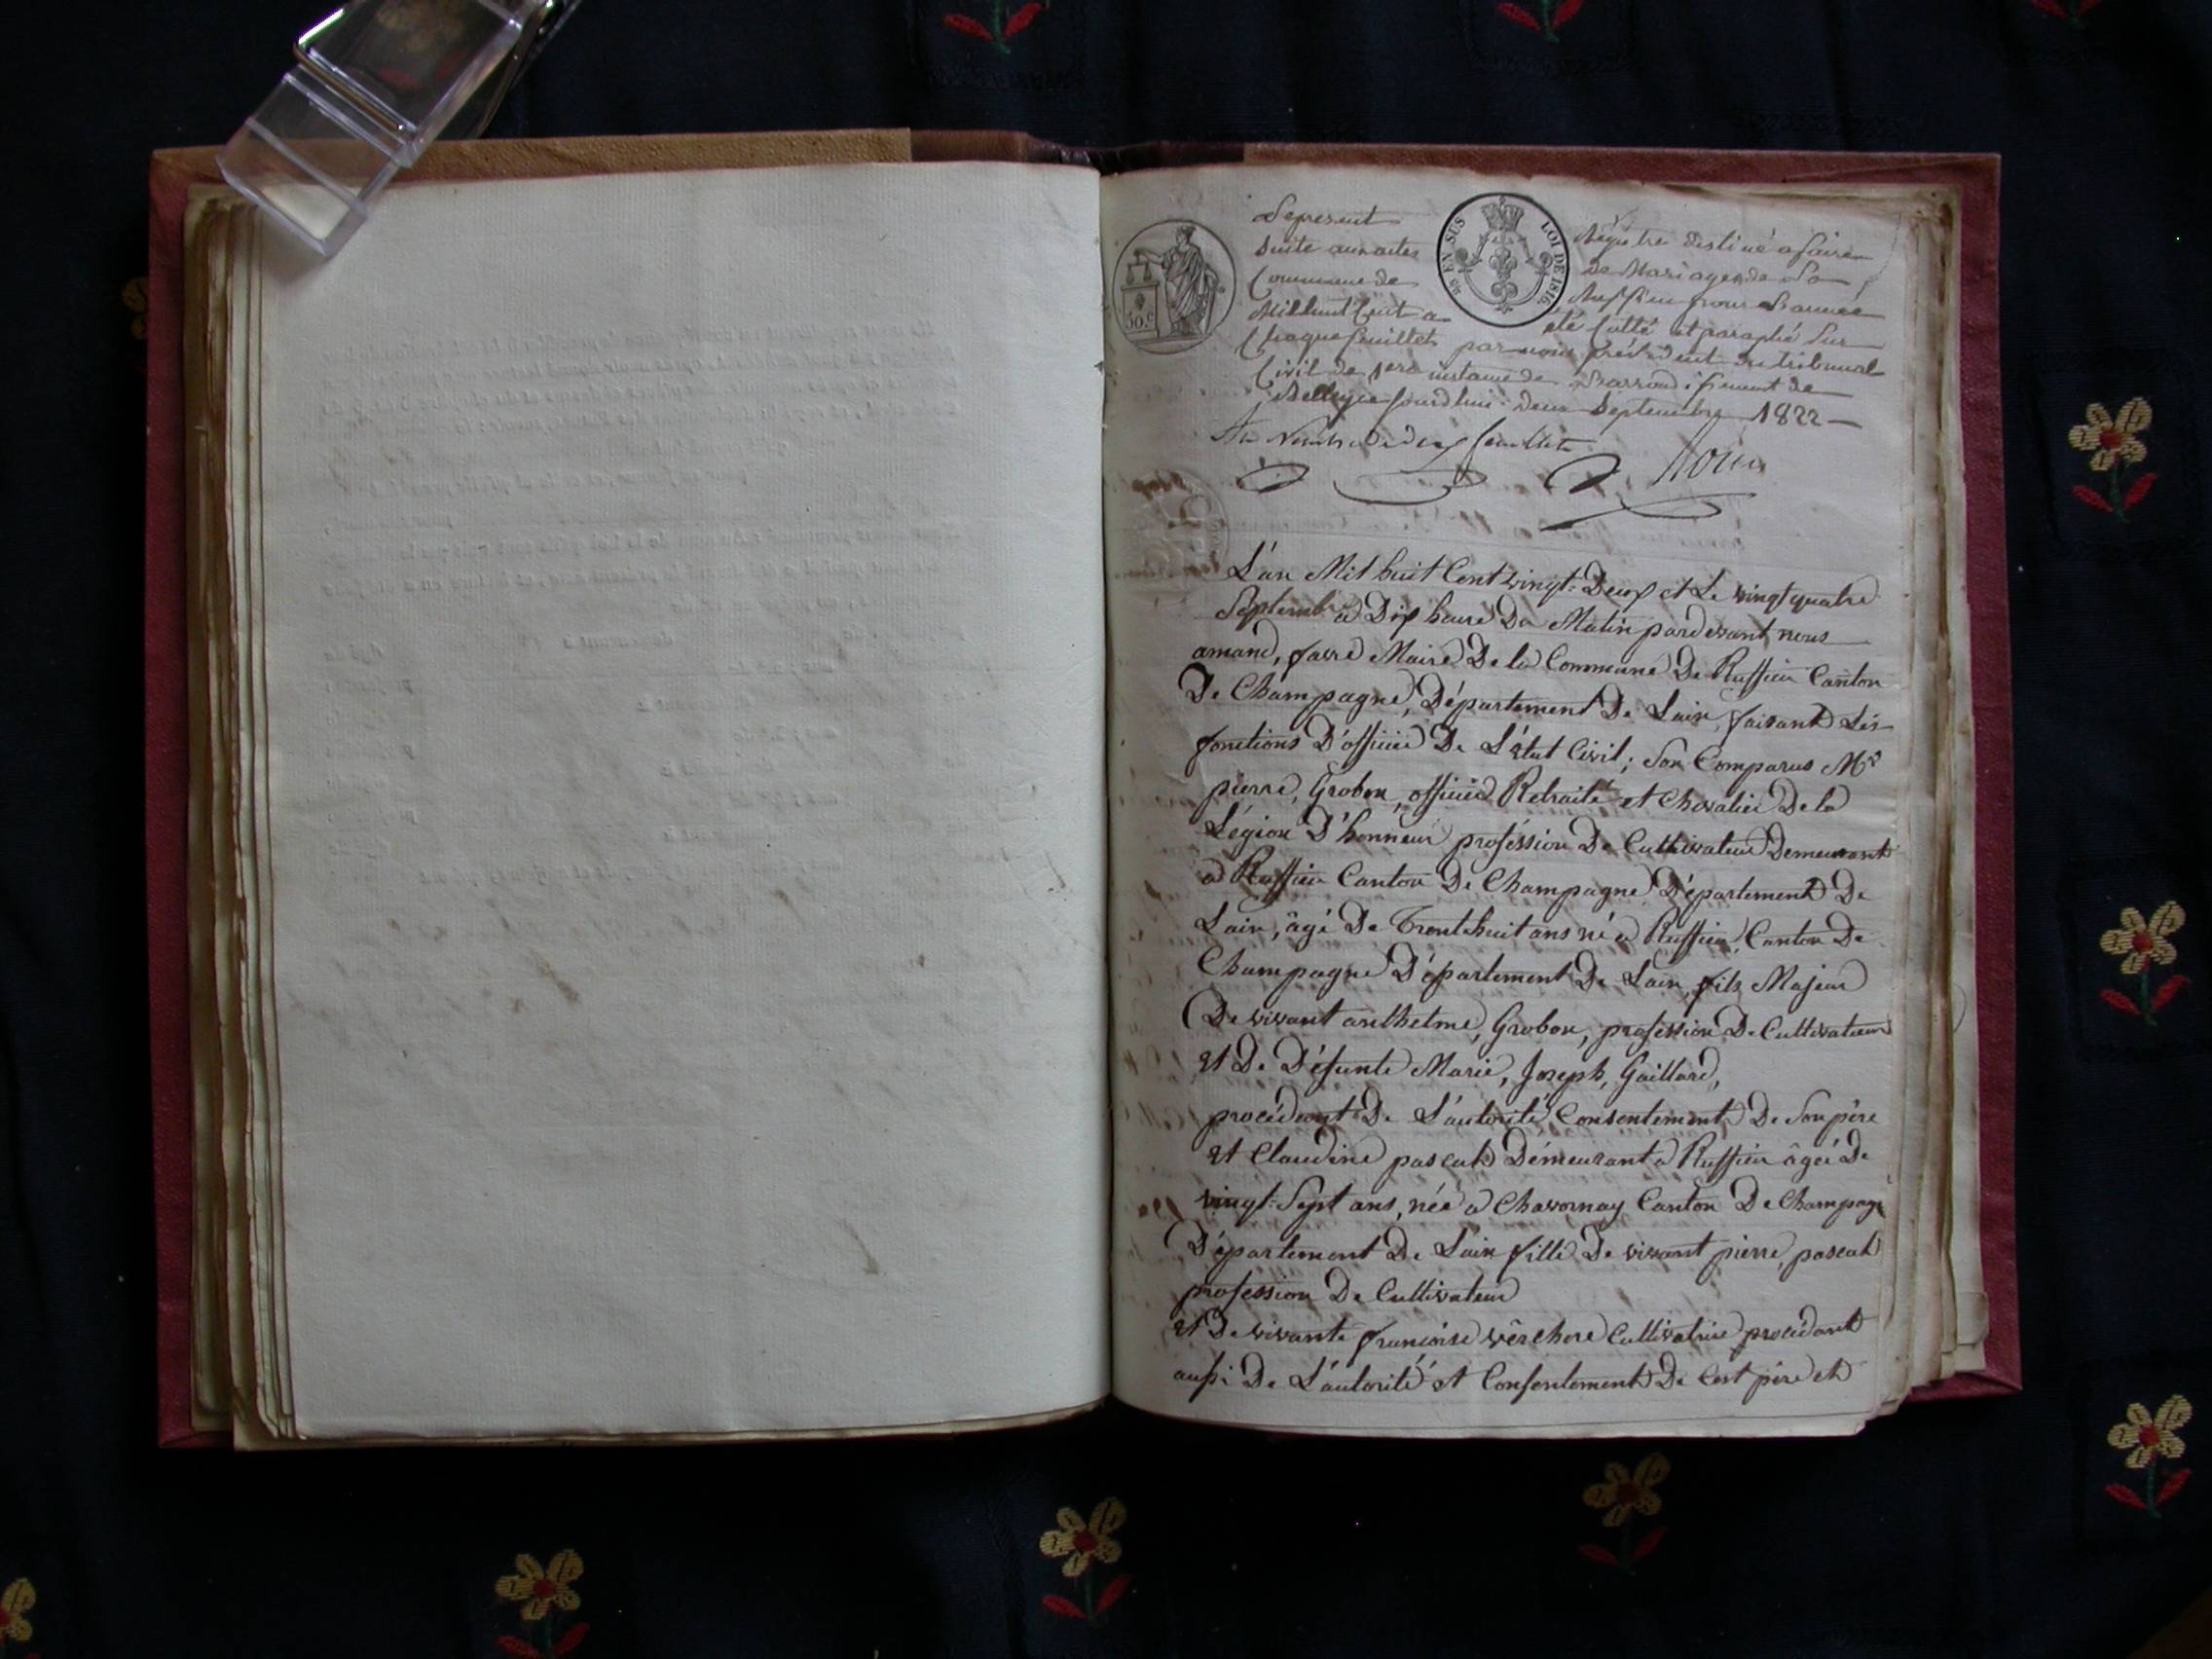 Le present Régistre destiné a faire
Suite aux actes de Mariages de La
Commune de Ruffieu pour L'année
Mil huit Cent a été Cotté et paraphé Sur
Chaque feuillet par nous président du tribunal
Civil de 1ere instance de L'arrondissement de
Belley ce jourd'hui deux Septembre 1822
Au Nombre de feuillets
50.c
95 EN SUS LOI DE 1816.
L'an Mil huit Cent vingt-Deux et Le vingt quatre
Septembre a Dix heure Du Matin pardevant nous
amand, favre Maire De la Commune De Ruffieu Canton
De Champagne, Département De Lain, faisant Les
fonctions D'officié De L'état Civil; Son Comparus Mr
pierre, Grobon, officié Retraité et Chevalier De la
Légion D'honneur profession De Cultivateur Demeurant
a Ruffieu Canton De Champagne D'épartement De
Lain, âgé De Trente huit ans né a Ruffieu Canton De
Champagne D'épartement De Lain, fils Majeur
De vivant anthelme, Grobon, profession De Cultivateur
et De D'éfunte Marie, Joseph, Gaillard,
procédant De L'autorité Consentement De Son père
et Claudine pascal Démeurant a Ruffieu âgée De
vingt-Sept ans, née a Chavornay Canton De Champagne
D'épartement De Lain fille De vivant pierre, pascal
profession De Cultivateur
et De vivante françoise vêrchere Cultivatrice procédant
aussi De L'autorité et Consentement De Cest père et